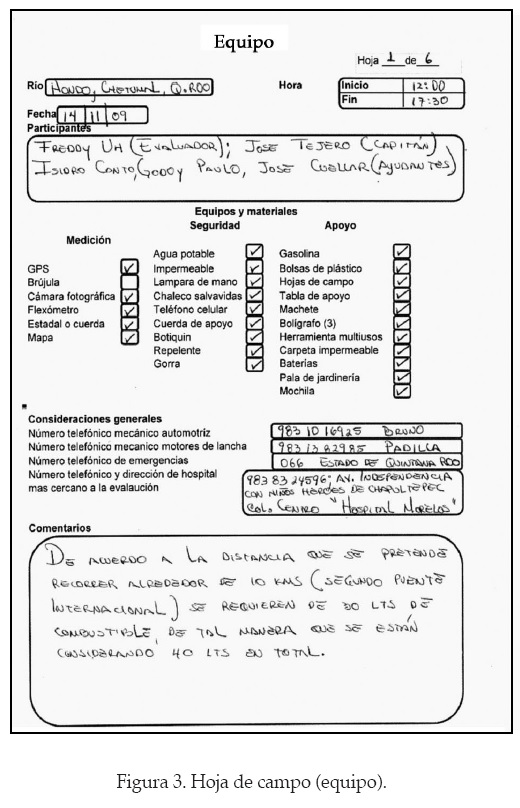 Equipo
Hoja 1 de 6
Río HONDO, CHETUMAL, Q.ROO
Hora Inicio 12:00
Fin 17:30
Fecha 14 11 09
Participantes
FREDDY UH (EVALUADOR); JOSE TEJERO (CAPITÁN)
ISIDRO CANTO, GODDY PAULO, JOSE CUELLAR (AYUDANTES)
Equipos y materiales
Medición
GPS ✓
Brújula
Cámara fotográfica ✓
Flexómetro ✓
Estadal o cuerda ✓
Mapa ✓
Seguridad
Agua potable ✓
Impermeable ✓
Lampara de mano ✓
Chaleco salvavidas ✓
Teléfono celular ✓
Cuerda de apoyo ✓
Botiquin ✓
Repelente ✓
Gorra ✓
Apoyo
Gasolina ✓
Bolsas de plástico ✓
Hojas de campo ✓
Tabla de apoyo ✓
Machete ✓
Bolígrafo (3) ✓
Herramienta multiusos ✓
Carpeta impermeable ✓
Baterías ✓
Pala de jardinería ✓
Mochila ✓
Consideraciones generales
Número telefónico mecánico automotriz 983 10 16925 BRUNO
Número telefónico mecanico motores de lancha 983 13 82985 PADILLA
Número telefónico de emergencias 066 ESTADO DE QUINTANA ROO
Número telefónico y dirección de hospital
mas cercano a la evalaución
983 83 24596; AV. INDEPENDENCIA
CON NIÑOS HEROES DE CHAPULTEPEC
COL. CENTRO "HOSPITAL MORELOS"
Comentarios
DE ACUERDO A LA DISTANCIA QUE SE PRETENDE
RECORRER ALREDEDOR DE 10 KMS (SEGUNDO PUENTE
INTERNACIONAL) SE REQUIEREN DE 30 LTS DE
COMBUSTIBLE, DE TAL MANERA QUE SE ESTÁN
CONSIDERANDO 40 LTS EN TOTAL.
Figura 3. Hoja de campo (equipo).